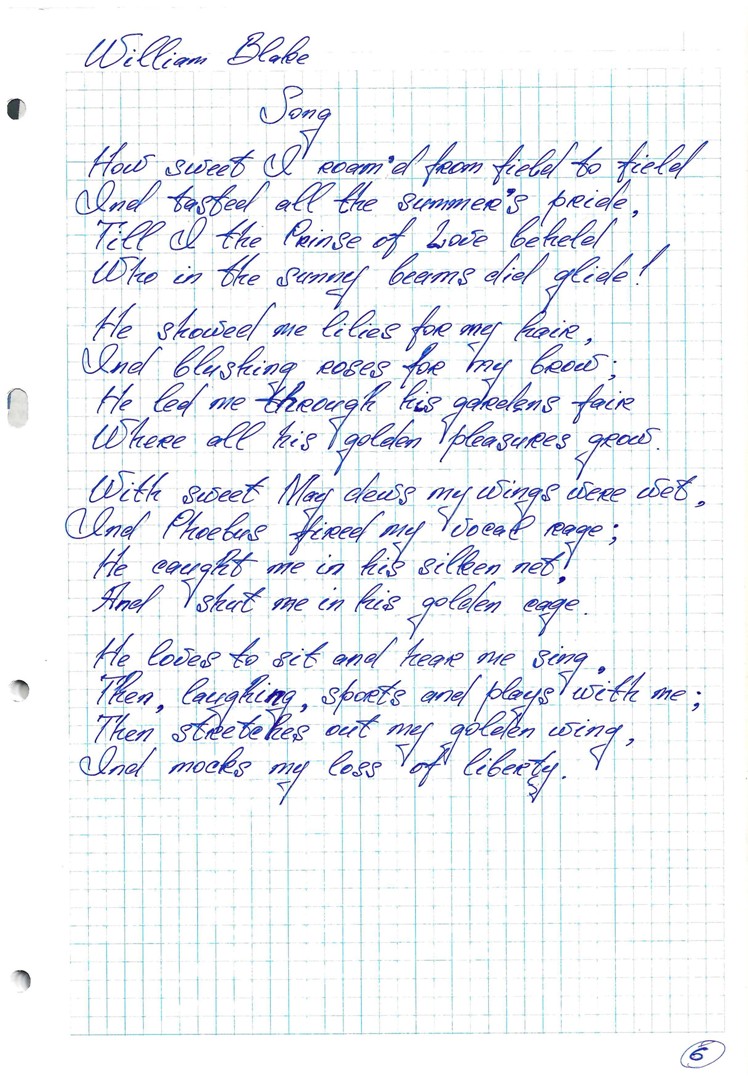 William Blake
Song
How sweet I roam'd from field to field
And tasted all the summer's pride,
Till I the Prinse of Love beheld
Who in the sunny beams did glide!
He showed me lilies for my hair,
And blushing roses for my brow;
He led me through his gardens fair
Where all his golden pleasures grow.
With sweet May dews my wings were wet,
And Phoebus fired my vocal rage;
He caught me in his silken net,
And shut me in his golden cage.
He loves to sit and hear me sing,
Then, laughing, sports and plays with me;
Then stretches out my golden wing,
And mocks my loss of liberty.
6